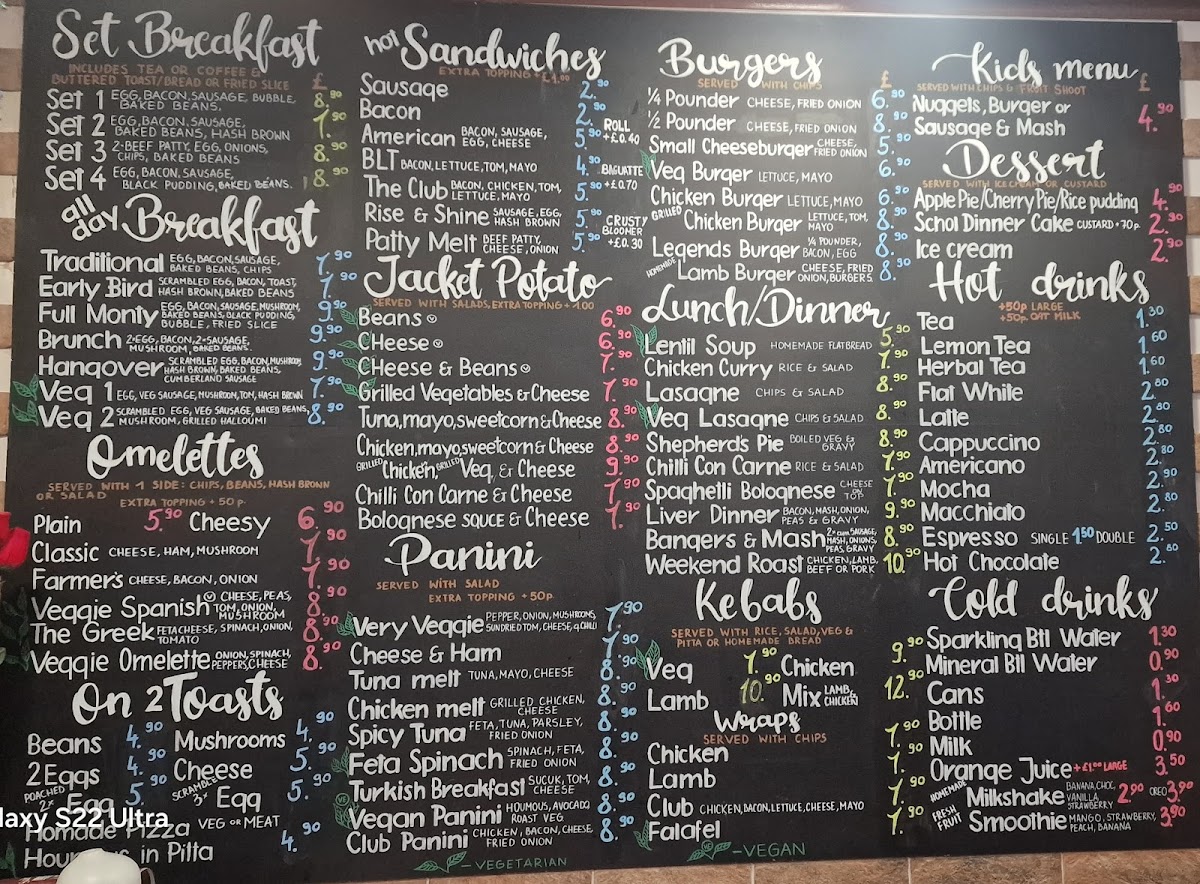 Set Breakfast
INCLUDES TEA OR COFFEE &
BUTTERED TOAST/BREAD OR FRIED SLICE £
Set 1 EGG, BACON, SAUSAGE, BUBBLE, BAKED BEANS, 8.90
Set 2 EGG, BACON, SAUSAGE, BAKED BEANS, HASH BROWN 7.90
Set 3 2-BEEF PATTY, EGG, ONIONS, CHIPS, BAKED BEANS 8.90
Set 4 EGG, BACON, SAUSAGE, BLACK PUDDING, BAKED BEANS. 8.90
all day Breakfast
Traditional EGG, BACON, SAUSAGE, BAKED BEANS, CHIPS 7.90
Early Bird SCRAMBLED EGG, BACON, TOAST, HASH BROWN, BAKED BEANS 7.90
Full Monty EGG, BACON, SAUSAGE, MUSHROOM, BAKED BEANS, BLACK PUDDING, BUBBLE, FRIED SLICE 9.90
Brunch 2-EGG, BACON, 2-SAUSAGE, MUSHROOM, BAKED BEANS 9.90
Hangover SCRAMBLED EGG, BACON, MUSHROOM, HASH BROWN, BAKED BEANS, CUMBERLAND SAUSAGE 9.90
Veg 1 EGG, VEG SAUSAGE, MUSHROOM, TOM, HASH BROWN 7.90
Veg 2 SCRAMBLED EGG, VEG SAUSAGE, BAKED BEANS, MUSHROOM, GRILLED HALLOUMI 8.90
Omelettes
SERVED WITH 1 SIDE: CHIPS, BEANS, HASH BROWN
OR SALAD
EXTRA TOPPING + 50 p
Plain 5.90 Cheesy 6.90
Classic CHEESE, HAM, MUSHROOM 7.90
Farmer's CHEESE, BACON, ONION 7.90
Veggie Spanish CHEESE, PEAS, TOM, ONION, MUSHROOM 8.90
The Greek FETA CHEESE, SPINACH, ONION, TOMATO 8.90
Veggie Omelette ONION, SPINACH, PEPPERS, CHEESE 8.90
On 2 Toasts
Beans 4.90 Mushrooms 4.90
2 Eggs 4.90 Cheese 5.90
POACHED 2x Egg 5.90 SCRAMBLED 3x Egg 5.90
Homade Pizza VEG OR MEAT
in Pitta 4.90
laxy S22 Ultra
hot Sandwiches
EXTRA TOPPING + £1.00
Sausage 2.90
Bacon 2.90
American BACON, SAUSAGE, EGG, CHEESE 5.90
BLT BACON, LETTUCE, TOM, MAYO 4.90
The Club BACON, CHICKEN, TOM, LETTUCE, MAYO 5.90
Rise & Shine SAUSAGE, EGG, HASH BROWN 5.90
Patty Melt BEEF PATTY, CHEESE, ONION 5.90
ROLL
+£0.40
BAGUETTE
+£0.70
CRUSTY
BLOOMER
+£0.30
Jacket Potato
SERVED WITH SALADS, EXTRA TOPPING + 1.00
Beans 6.90
Cheese 6.90
Cheese & Beans 7.90
Grilled Vegetables & Cheese 7.90
Tuna, mayo, sweetcorn & Cheese 8.90
Chicken, mayo, sweetcorn & Cheese 8.90
GRILLED Chicken, GRILLED Veg, & Cheese 9.90
Chilli Con Carne & Cheese 7.90
Bolognese squce & Cheese 7.90
Panini
SERVED WITH SALAD
EXTRA TOPPING + 50p
Very Veggie PEPPER, ONION, MUSHROOMS, SUNDRIED TOM, CHEESE, CHILLI 7.90
Cheese & Ham 7.90
Tuna melt TUNA, MAYO, CHEESE 8.90
Chicken melt GRILLED CHICKEN, CHEESE 8.90
Spicy Tuna FETA, TUNA, PARSLEY, FRIED ONION 8.90
Feta Spinach SPINACH, FETA, FRIED ONION 8.90
Turkish Breakfast SUCUK, TOM, CHEESE 8.90
Vegan Panini HOUMOUS, AVOCADO ROAST VEG 8.90
Club Panini CHICKEN, BACON, CHEESE, FRIED ONION 8.90
- VEGETARIAN
Burgers
SERVED WITH CHIPS £
1/4 Pounder CHEESE, FRIED ONION 6.90
1/2 Pounder CHEESE, FRIED ONION 8.90
Small Cheeseburger CHEESE, FRIED ONION 5.90
Veg Burger LETTUCE, MAYO 6.90
Chicken Burger LETTUCE, MAYO 6.90
GRILLED Chicken Burger LETTUCE, TOM, MAYO 8.90
Legends Burger 1/4 POUNDER, BACON, EGG 8.90
HOMEMADE Lamb Burger CHEESE, FRIED ONION, BURGERS 8.90
Lunch/Dinner
Lentil Soup HOMEMADE FLATBREAD 5.90
Chicken Curry RICE & SALAD 7.90
Lasagne CHIPS & SALAD 8.90
Veg Lasagne CHIPS & SALAD 8.90
Shepherds Pie BOILED VEG & GRAVY 8.90
Chilli Con Carne RICE & SALAD 7.90
Spaghetti Bolognese CHEESE 7.90
Liver Dinner BACON, MASH, ONION, PEAS & GRAVY 9.90
Bangers & Mash 2x CUM SAUSAGE, MASH, ONIONS, PEAS, GRAVY 8.90
Weekend Roast CHICKEN, LAMB, BEEF OR PORK 10.90
Kebabs
SERVED WITH RICE, SALAD, VEG &
PITTA OR HOMEMADE BREAD
Veg 7.90 Chicken 9.90
Lamb 10.90 Mix LAMB, & CHICKEN 12.90
Wraps
SERVED WITH CHIPS
Chicken 7.90
Lamb 7.90
Club CHICKEN, BACON, LETTUCE, CHEESE, MAYO 7.90
Falafel 7.90
- VEGAN
Kids menu
SERVED WITH CHIPS & FRUIT SHOOT £
Nuggets, Burger or
Sausage & Mash 4.90
Dessert
SERVED WITH ICECREAM OR CUSTARD
Apple Pie/Cherry Pie/Rice pudding 4.90
Schol Dinner Cake CUSTARD + 70 p. 2.90
Ice cream 2.90
Hot drinks
+50p LARGE
+50p OAT MILK
Tea 1.30
Lemon Tea 1.60
Herbal Tea 1.60
Flat White 2.80
Latte 2.80
Cappuccino 2.80
Americano 2.80
Mocha 2.90
Macchiato 2.80
Espresso SINGLE 1.50 DOUBLE 2.50
Hot Chocolate 2.80
Cold drinks
Sparkling Btl Water 1.30
Mineral Btl Water 0.90
Cans 1.30
Bottle 1.60
Milk 0.90
Orange Juice + £1.00 LARGE 3.50
HOMEMADE Milkshake BANANA, CHOC, VANILLA, STRAWBERRY 2.90 OREO 3.90
FRESH FRUIT Smoothie MANGO, STRAWBERRY, PEACH, BANANA 3.90